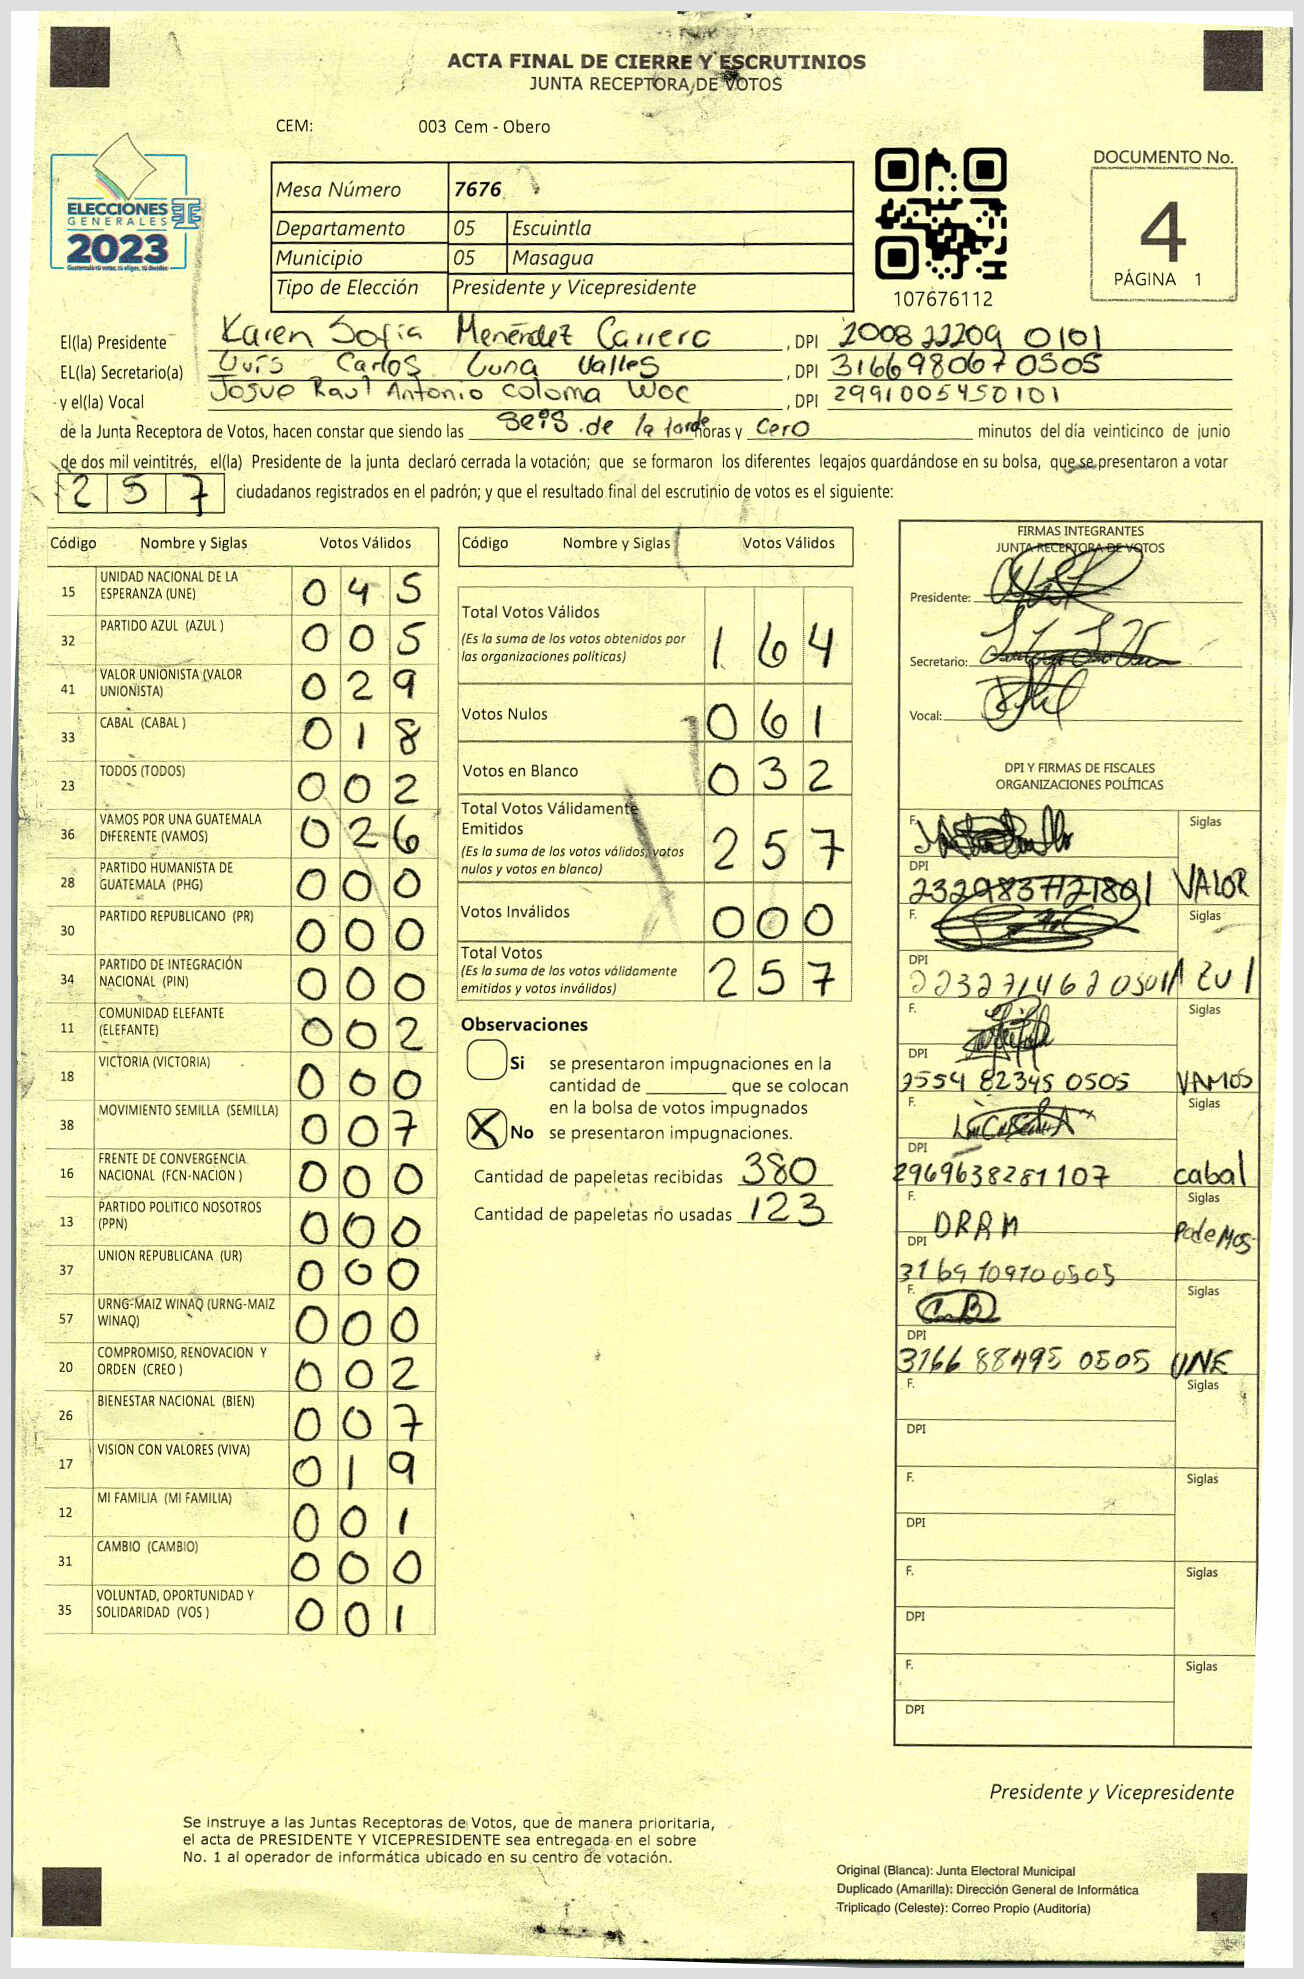 ACTA FINAL DE CIERRE Y ESCRUTINIOS
JUNTA RECEPTORA DE VOTOS
CEM: 003 Cem - Obero
ELECCIONES
GENERALES
2023
Mesa Número 7676
Departamento 05 Escuintla
Municipio 05 Masagua
Tipo de Elección Presidente y Vicepresidente
107676112
DOCUMENTO No.
4
PÁGINA 1
El(la) Presidente Karen Sofia Menéndez Carrera, DPI 200822209 0101
EL(la) Secretario(a) Luis Carlos Luna Valles, DPI 316698067 0505
y el(la) Vocal Josue Raul Antonio Coloma Woc, DPI 2991005450101
de la Junta Receptora de Votos, hacen constar que siendo las seis de la tarde horas y cero minutos del día veinticinco de junio
de dos mil veintitrés, el(la) Presidente de la junta declaró cerrada la votación; que se formaron los diferentes legajos guardándose en su bolsa, que se presentaron a votar
257 ciudadanos registrados en el padrón; y que el resultado final del escrutinio de votos es el siguiente:
Código Nombre y Siglas Votos Válidos
15 UNIDAD NACIONAL DE LA ESPERANZA (UNE) 045
32 PARTIDO AZUL (AZUL ) 005
41 VALOR UNIONISTA (VALOR UNIONISTA) 029
33 CABAL (CABAL ) 018
23 TODOS (TODOS) 002
36 VAMOS POR UNA GUATEMALA DIFERENTE (VAMOS) 026
28 PARTIDO HUMANISTA DE GUATEMALA (PHG) 000
30 PARTIDO REPUBLICANO (PR) 000
34 PARTIDO DE INTEGRACIÓN NACIONAL (PIN) 000
11 COMUNIDAD ELEFANTE (ELEFANTE) 002
18 VICTORIA (VICTORIA) 000
38 MOVIMIENTO SEMILLA (SEMILLA) 007
16 FRENTE DE CONVERGENCIA NACIONAL (FCN-NACION ) 000
13 PARTIDO POLITICO NOSOTROS (PPN) 000
37 UNION REPUBLICANA (UR) 000
57 URNG-MAIZ WINAQ (URNG-MAIZ WINAQ) 000
20 COMPROMISO, RENOVACION Y ORDEN (CREO ) 002
26 BIENESTAR NACIONAL (BIEN) 007
17 VISION CON VALORES (VIVA) 019
12 MI FAMILIA (MI FAMILIA) 001
31 CAMBIO (CAMBIO) 000
35 VOLUNTAD, OPORTUNIDAD Y SOLIDARIDAD (VOS ) 001
Código Nombre y Siglas Votos Válidos
Total Votos Válidos 164
(Es la suma de los votos obtenidos por
las organizaciones políticas)
Votos Nulos 061
Votos en Blanco 032
Total Votos Válidamente
Emitidos 257
(Es la suma de los votos válidos, votos
nulos y votos en blanco)
Votos Inválidos 000
Total Votos 257
(Es la suma de los votos válidamente
emitidos y votos inválidos)
Observaciones
Si se presentaron impugnaciones en la
cantidad de ________ que se colocan
en la bolsa de votos impugnados
X No se presentaron impugnaciones.
Cantidad de papeletas recibidas 380
Cantidad de papeletas no usadas 123
FIRMAS INTEGRANTES
JUNTA RECEPTORA DE VOTOS
Presidente:
Secretario:
Vocal:
DPI Y FIRMAS DE FISCALES
ORGANIZACIONES POLÍTICAS
F. Siglas
DPI
2329837121801 VALOR
F. Siglas
DPI
2232714620501 Azul
F. Siglas
DPI
2554 82345 0505 VAMOS
F. Siglas
DPI
2969638281107 cabal
F. DRAM Siglas
DPI Podemos
3169109100505
F. C.B Siglas
DPI
3166 88495 0505 UNE
F. Siglas
DPI
F. Siglas
DPI
F. Siglas
DPI
F. Siglas
DPI
Presidente y Vicepresidente
Se instruye a las Juntas Receptoras de Votos, que de manera prioritaria,
el acta de PRESIDENTE Y VICEPRESIDENTE sea entregada en el sobre
No. 1 al operador de informática ubicado en su centro de votación.
Original (Blanca): Junta Electoral Municipal
Duplicado (Amarilla): Dirección General de Informática
Triplicado (Celeste): Correo Propio (Auditoría)